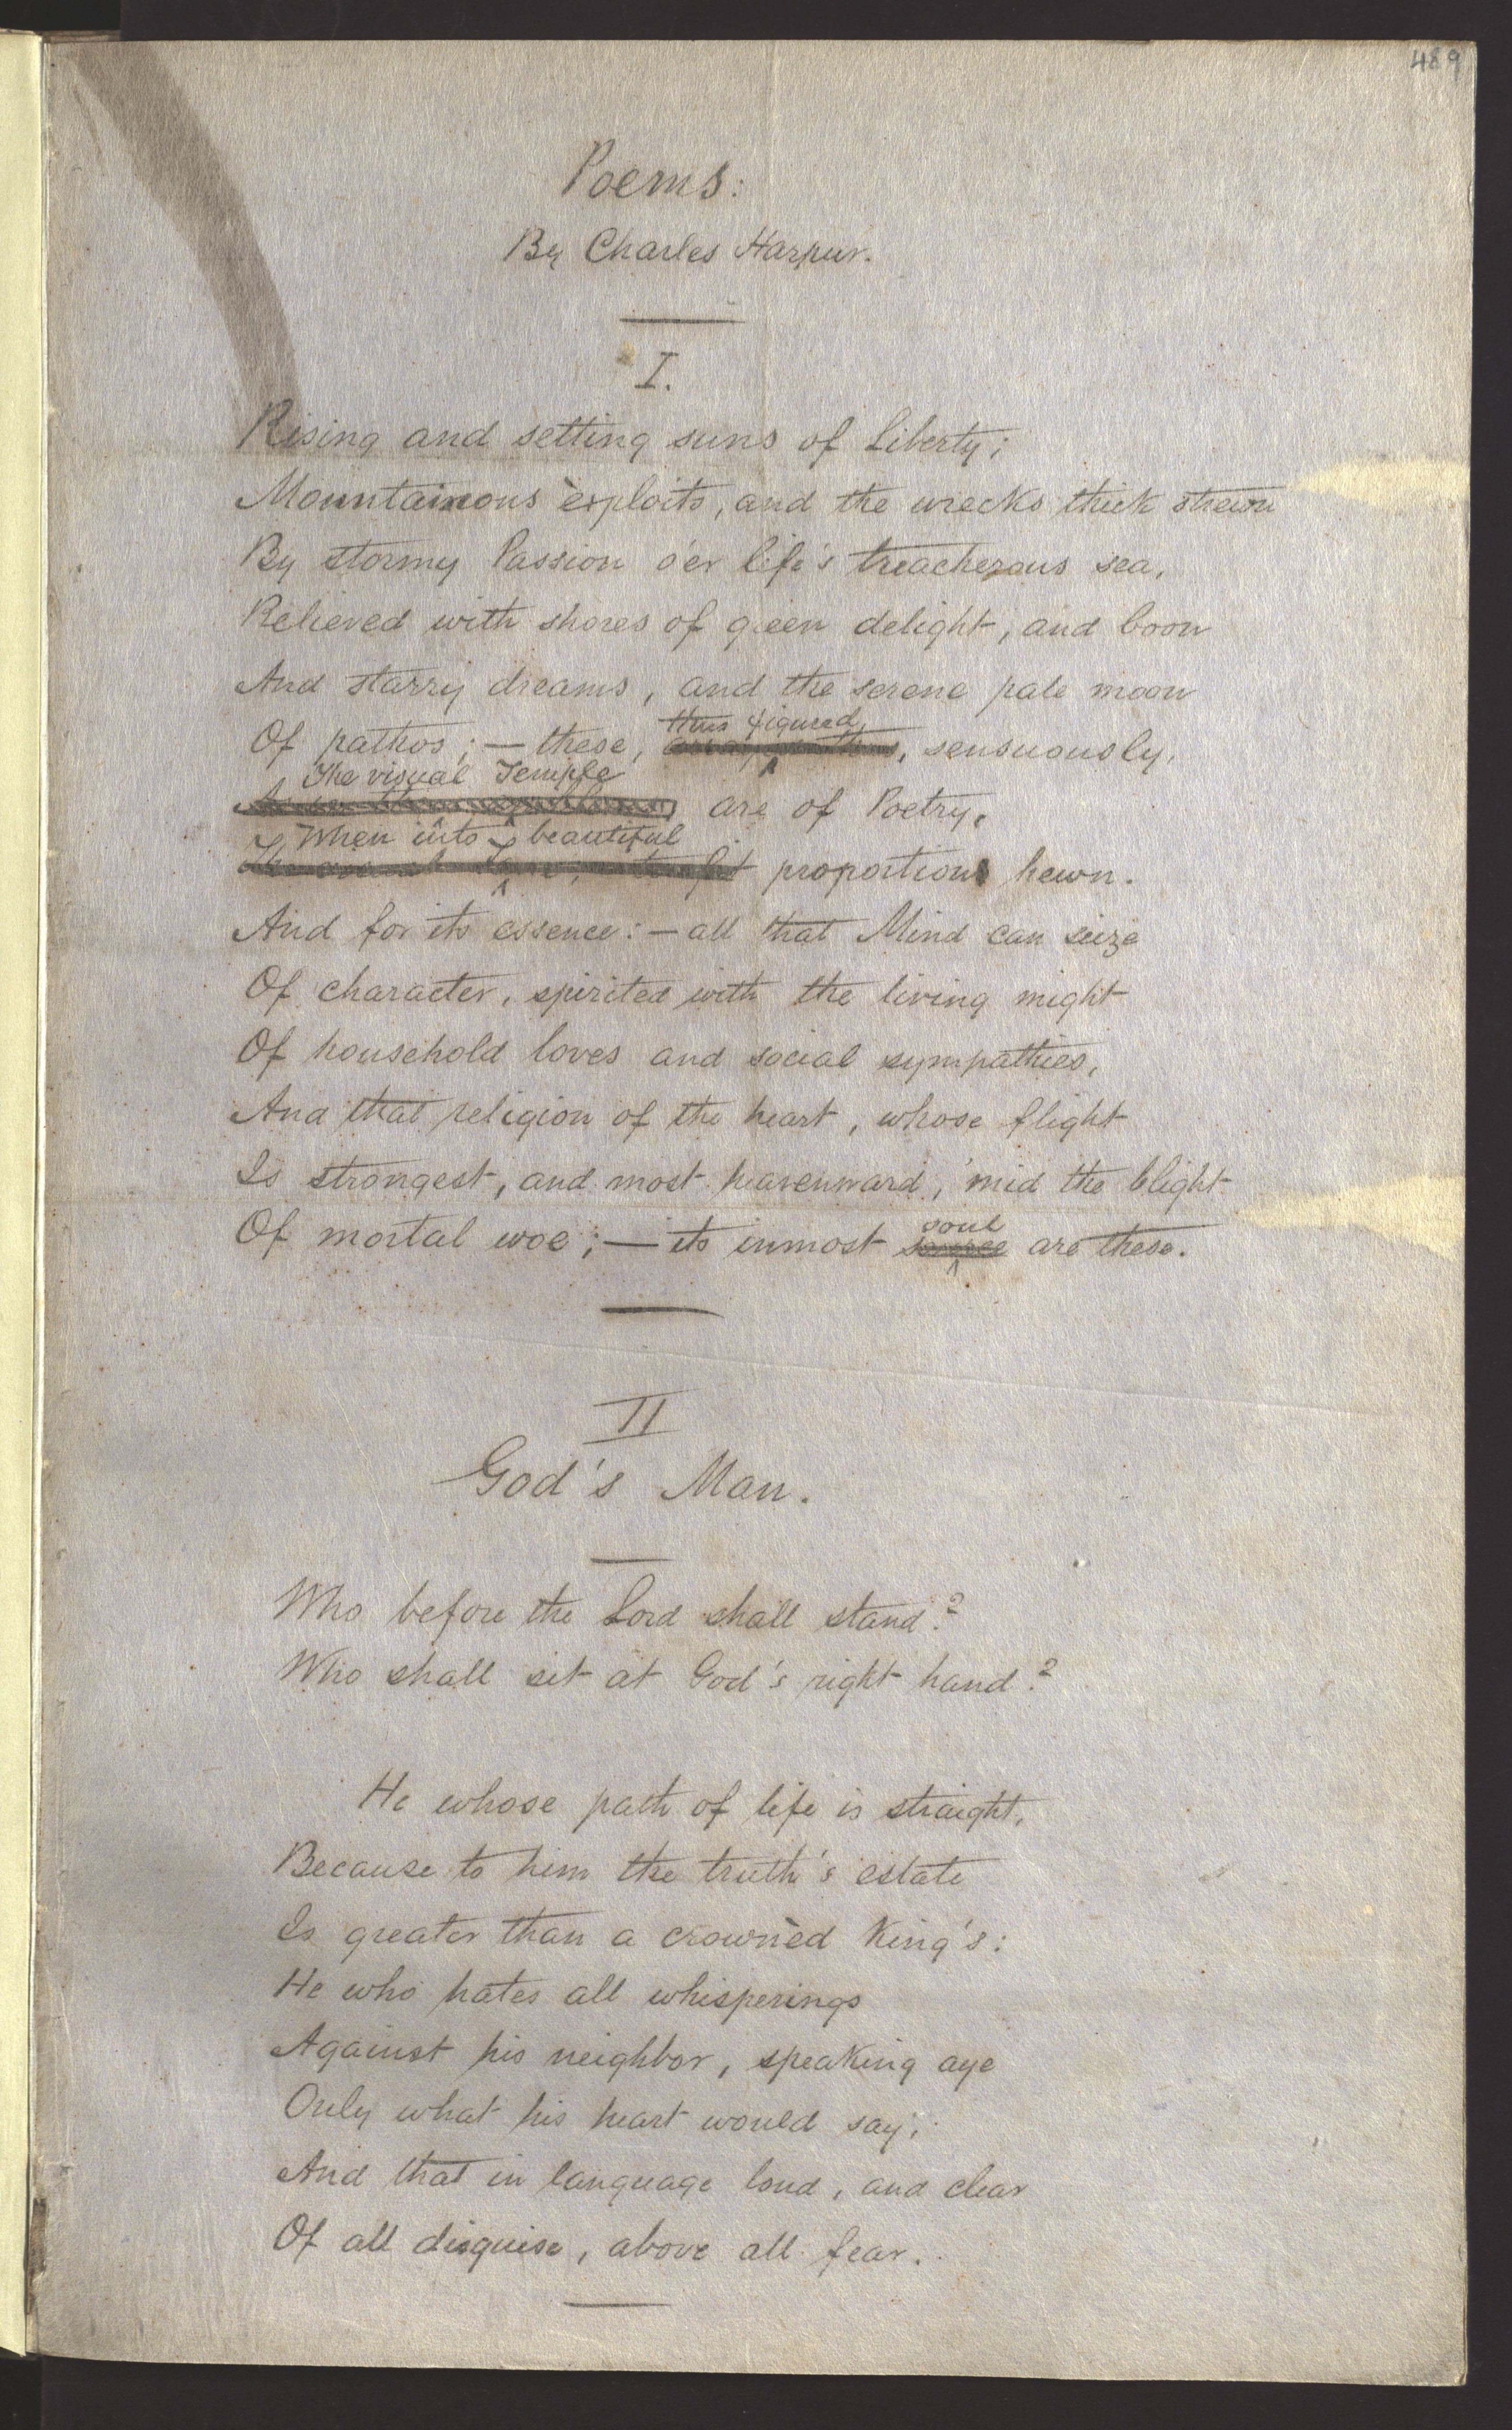 489
Poems:
By Charles Harpur.
I.
Rising and setting suns of Liberty;
Mountainous exploits, and the wrecks thick strewn
By stormy Passion o'er life's treacherous sea,
Relieved with shores of green delight, and boon
And starry dreams, and the serene pale moon
thus figured,
Of pathos; — these, sensuously,
The visual Temple
are of Poetry,
When into beautiful
proportions hewn.
And for its essence: — all that Mind can seize
Of character, spirited with the living might
Of household loves and social sympathies,
And that religion of the heart, whose flight
Is strongest, and most heavenward, 'mid the blight
soul
Of mortal woe; — its inmost are these.
II
God's Man.
Who before the Lord shall stand?
Who shall sit at God's right hand?
He whose path of life is straight,
Because to him the truth's estate
Is greater than a crownèd King's:
He who hates all whisperings
Against his neighbor, speaking aye
Only what his heart would say,
And that in language loud, and clear
Of all disguise, above all fear.